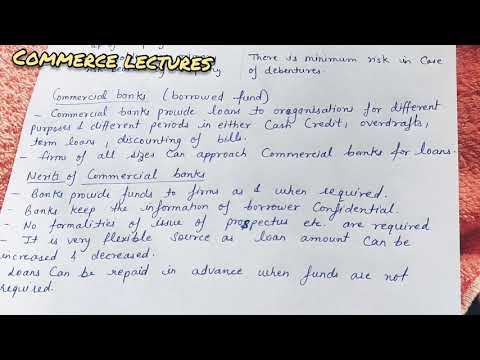 COMMERCE LECTURES
There is minimum risk in case
of debentures.
Commercial banks (borrowed fund)
- Commercial banks provide loans to organisation for different
purposes & different periods in either Cash Credit, overdrafts,
term loans, discounting of bills.
- firms of all sizes can approach Commercial banks for loans.
Merits of Commercial banks
- Banks provide funds to firms as & when required.
- Banks keep the information of borrower Confidential.
- No formalities of issue of prospectus etc. are required
- It is very flexible source as loan amount can be
increased & decreased.
Loans can be repaid in advance when funds are not
required.